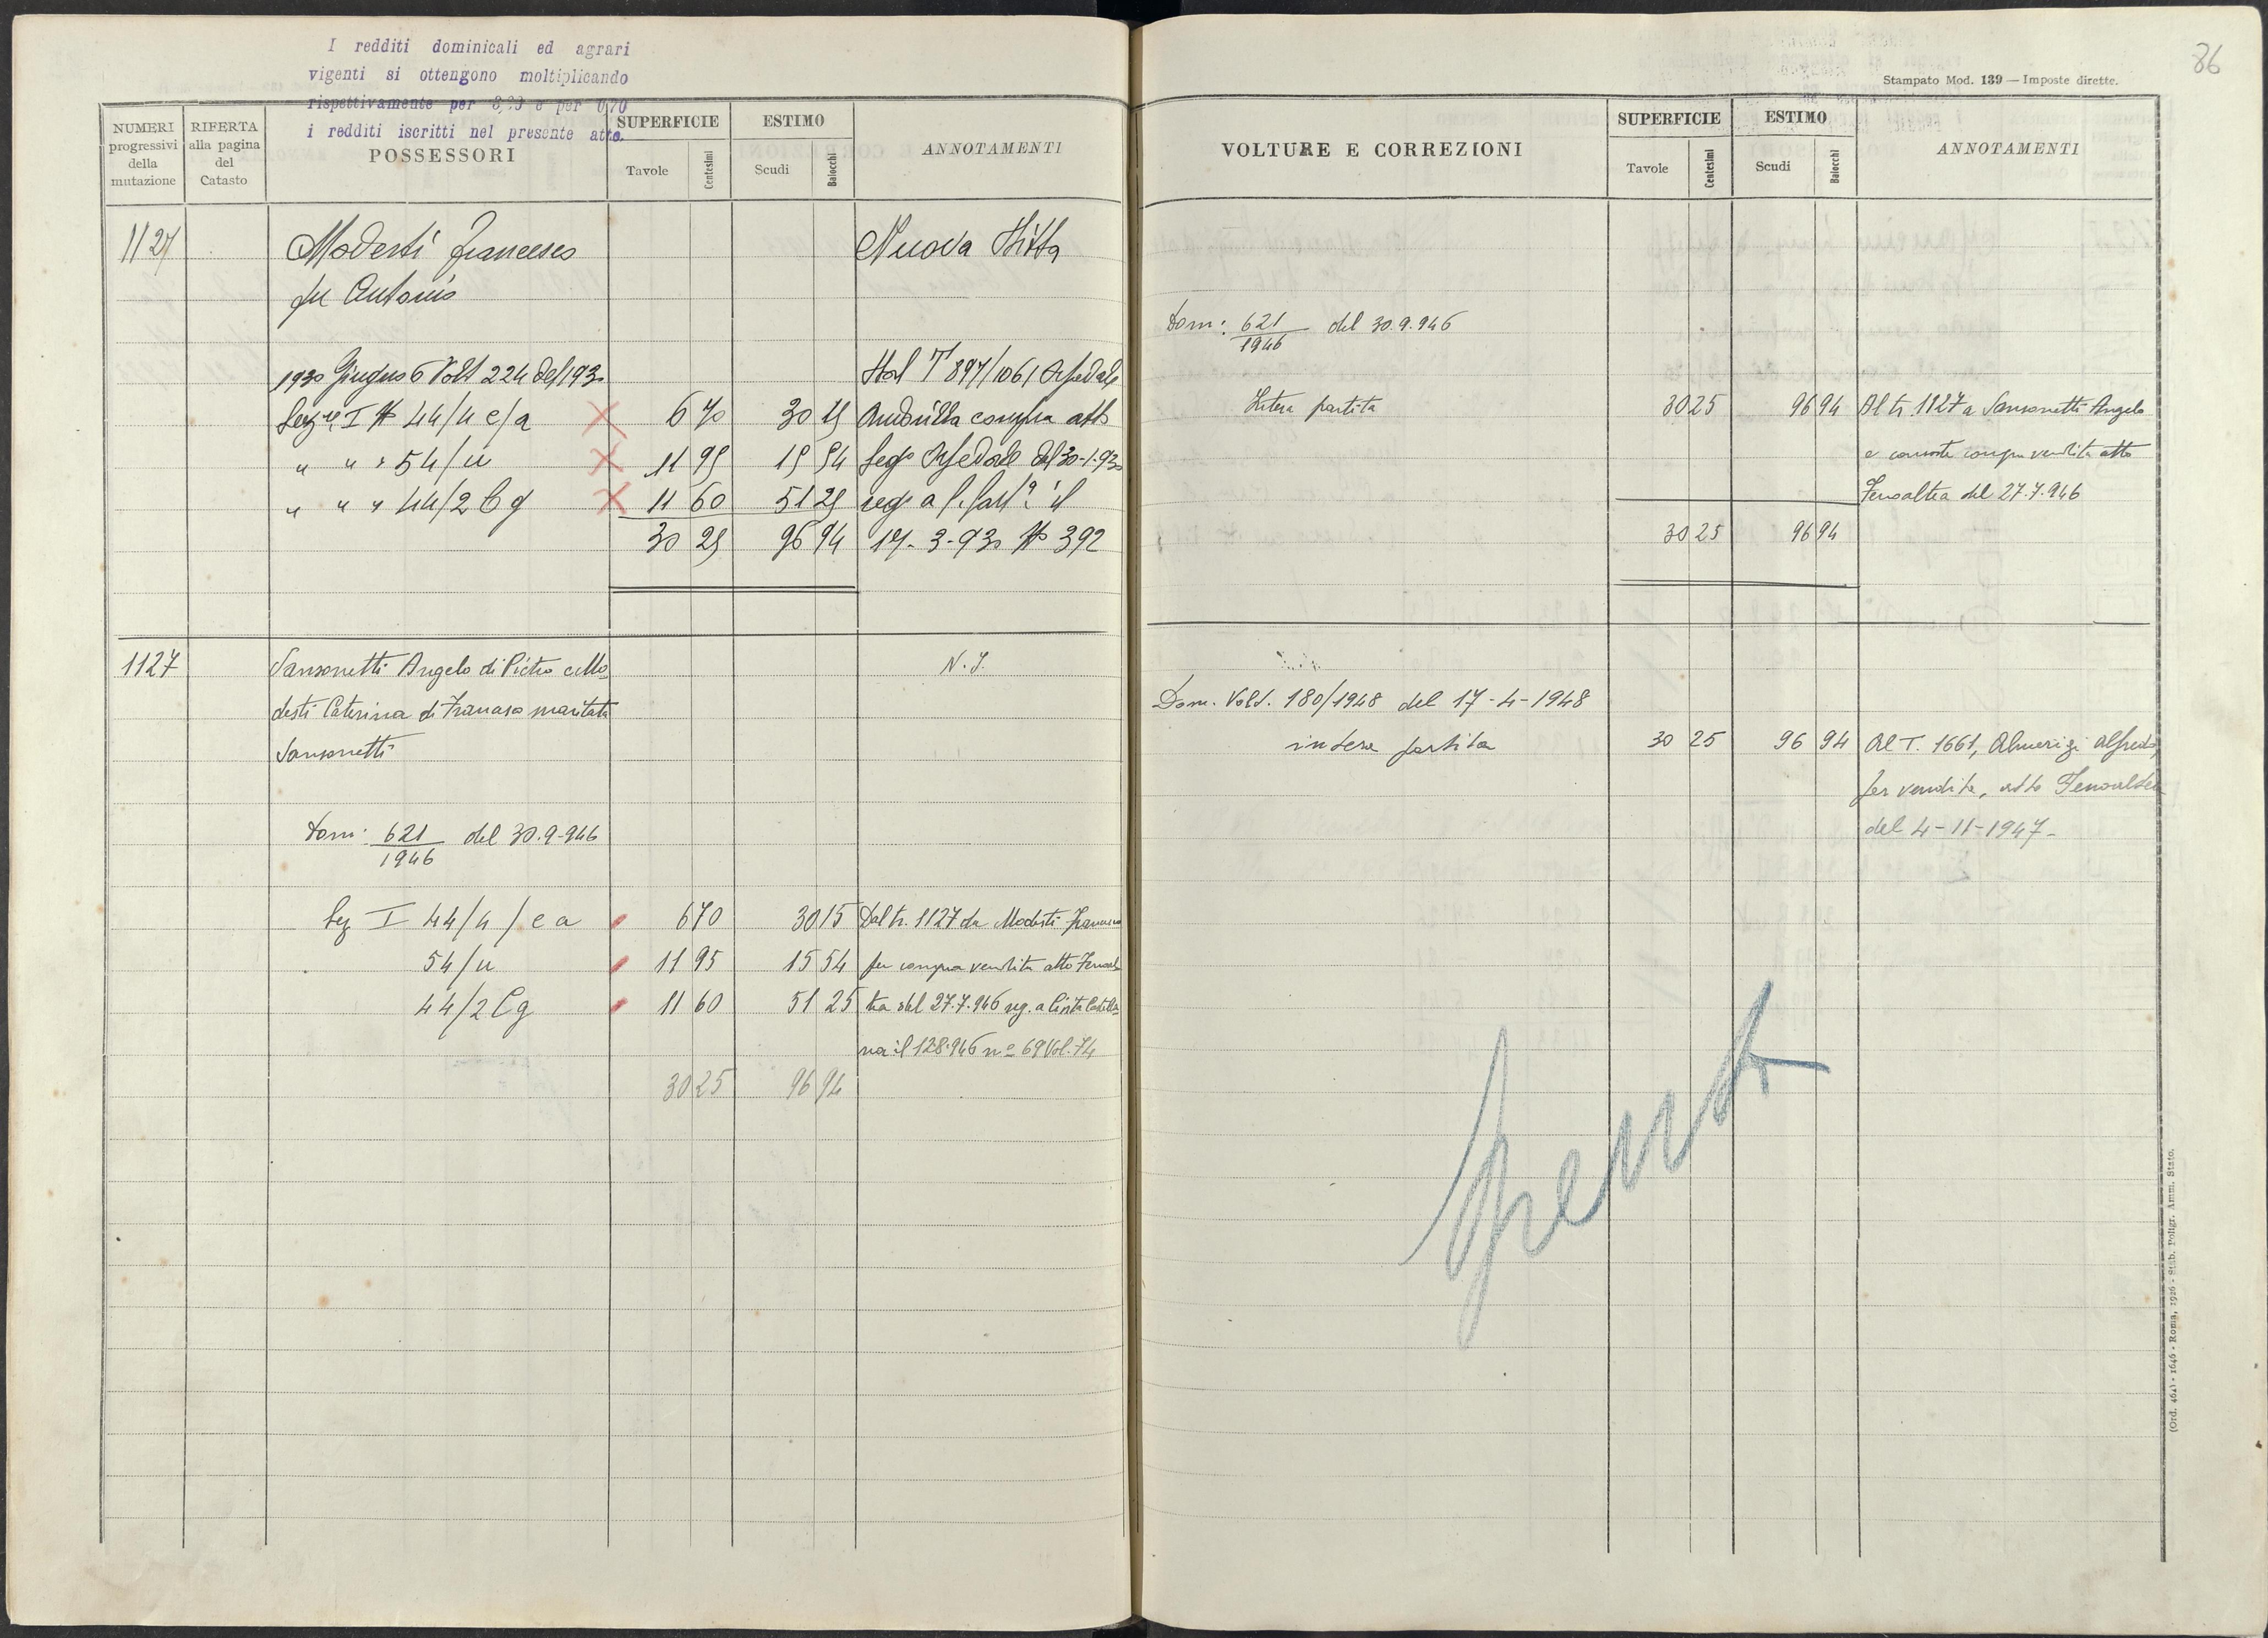 I redditi dominicali ed agrari
vigenti si ottengono moltiplicando
rispettivamente per 8,20 e per 0,70
i redditi iscritti nel presente atto.
NUMERI progressivi della mutazione
RIFERTA alla pagina del Catasto
POSSESSORI
SUPERFICIE
Tavole Centesimi
ESTIMO
Scudi Baiocchi
ANNOTAMENTI
1127 Modesti Francesco Nuova Ditta
fu Antonio
1930 Giugno 6 Volt 224 del 1930 Dal T 897/1061
Sez.e I N 44/4 e/a 6 70 30 15 compra atto
" " " 54/u 11 95 15 54 Sege del 30-1-930
" " " 44/2 Cg 11 60 51 25 reg a il
30 25 96 94 17-3-930 N° 392
1127 Sansonetti Angelo di Pietro e Mo N. I.
desti Caterina di Francesco maritata
Sansonetti
Dom: 621/1946 del 30.9.946
Sez I 44/4/e a 670 30 15 Dal tr. 1127 da Modesti Francesco
54/u 11 95 15 54 per compra vendita atto Fenoal
44/2 Cg 11 60 51 25 tea del 27.7.946 reg. a Civita Castella
na il 12.8.946 n° 69 Vol. 74
30 25 96 94
86
Stampato Mod. 139 — Imposte dirette.
VOLTURE E CORREZIONI
SUPERFICIE
Tavole Centesimi
ESTIMO
Scudi Baiocchi
ANNOTAMENTI
Dom: 621/1946 del 30.9.946
Intera partita 30 25 96 94 Al tr. 1127 a Sansonetti Angelo
e consorte compra vendita atto
Fenoaltea del 27.7.946
30 25 96 94
Dom. Volt. 180/1948 del 17-4-1948
intera partita 30 25 96 94 Al T. 1661, Almerigi Alfredo,
per vendita, atto Fenoaltea
del 4-11-1947-
Spento
(Ord. 464) - 1646 - Roma, 1926 - Stab. Poligr. Amm. Stato.